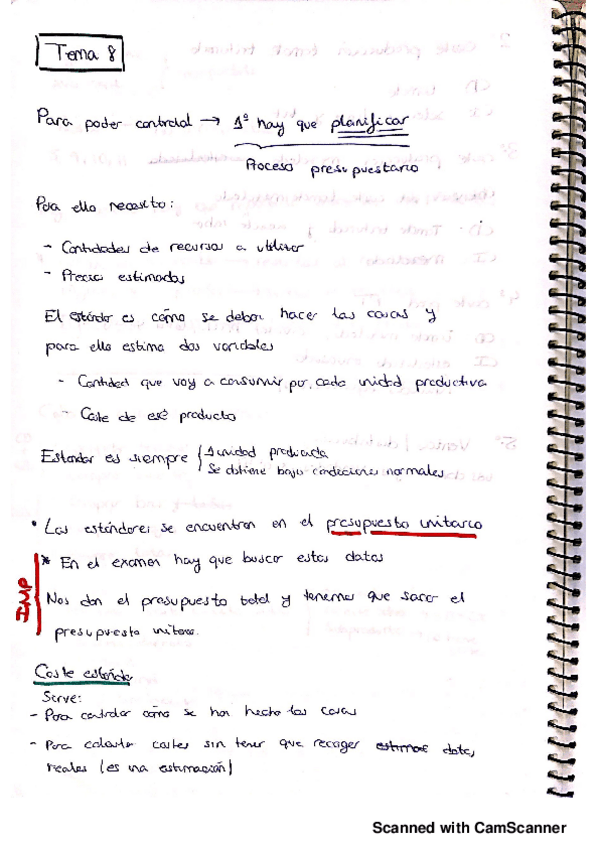 Tema 8
Para poder controlar → 1º hay que planificar
Proceso presupuestario
Para ello necesito:
- Cantidades de recursos a utilizar
- Precios estimados
El estándar es cómo se deben hacer las cosas y
para ello estima dos variables
- Cantidad que voy a consumir por cada unidad productiva
- Coste de ese producto
Estandar es siempre { 1 unidad producida
Se obtiene bajo condiciones normales
• Los estándares se encuentran en el presupuesto unitario
IMP
* En el examen hay que buscar estos datos
Nos dan el presupuesto total y tenemos que sacar el
presupuesto unitario.
Coste estándar
Sirve:
- Para controlar cómo se han hecho las cosas
- Para calcular costes sin tener que recoger datos
reales (es una estimación)
Scanned with CamScanner